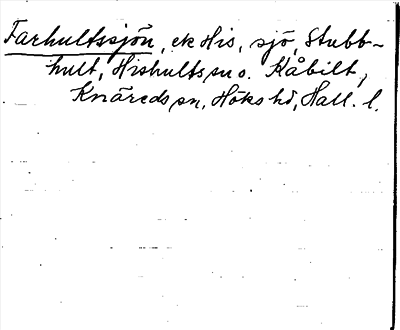 Farhultssjön, ek His, sjö, Stubb-
hult, Hishults sn o. Kåbilt,
Knäreds sn, Höks hd, Hall. l.